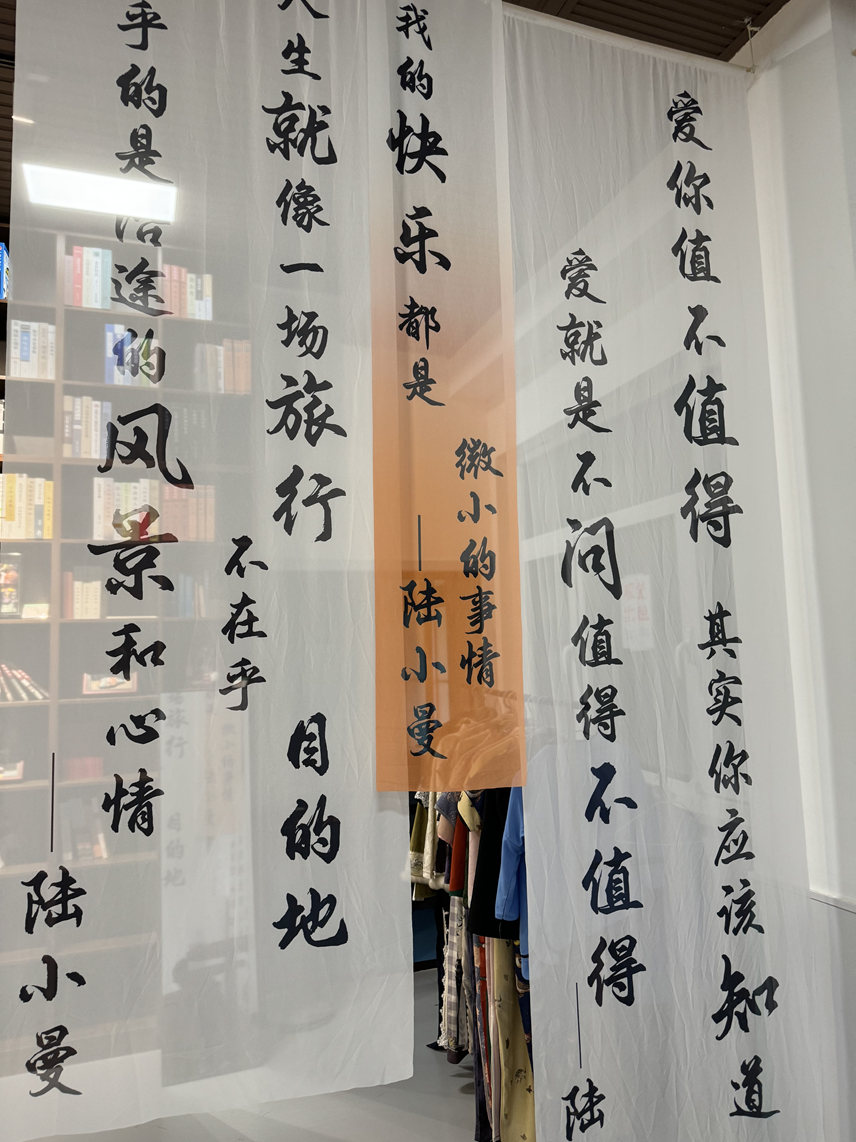 爱你值不值得 其实你应该知道
爱就是不问值得不值得
——陆
我的快乐都是
微小的事情
——陆小曼
人生就像一场旅行
不在乎
目的地
乎的是沿途的风景和心情
——陆小曼